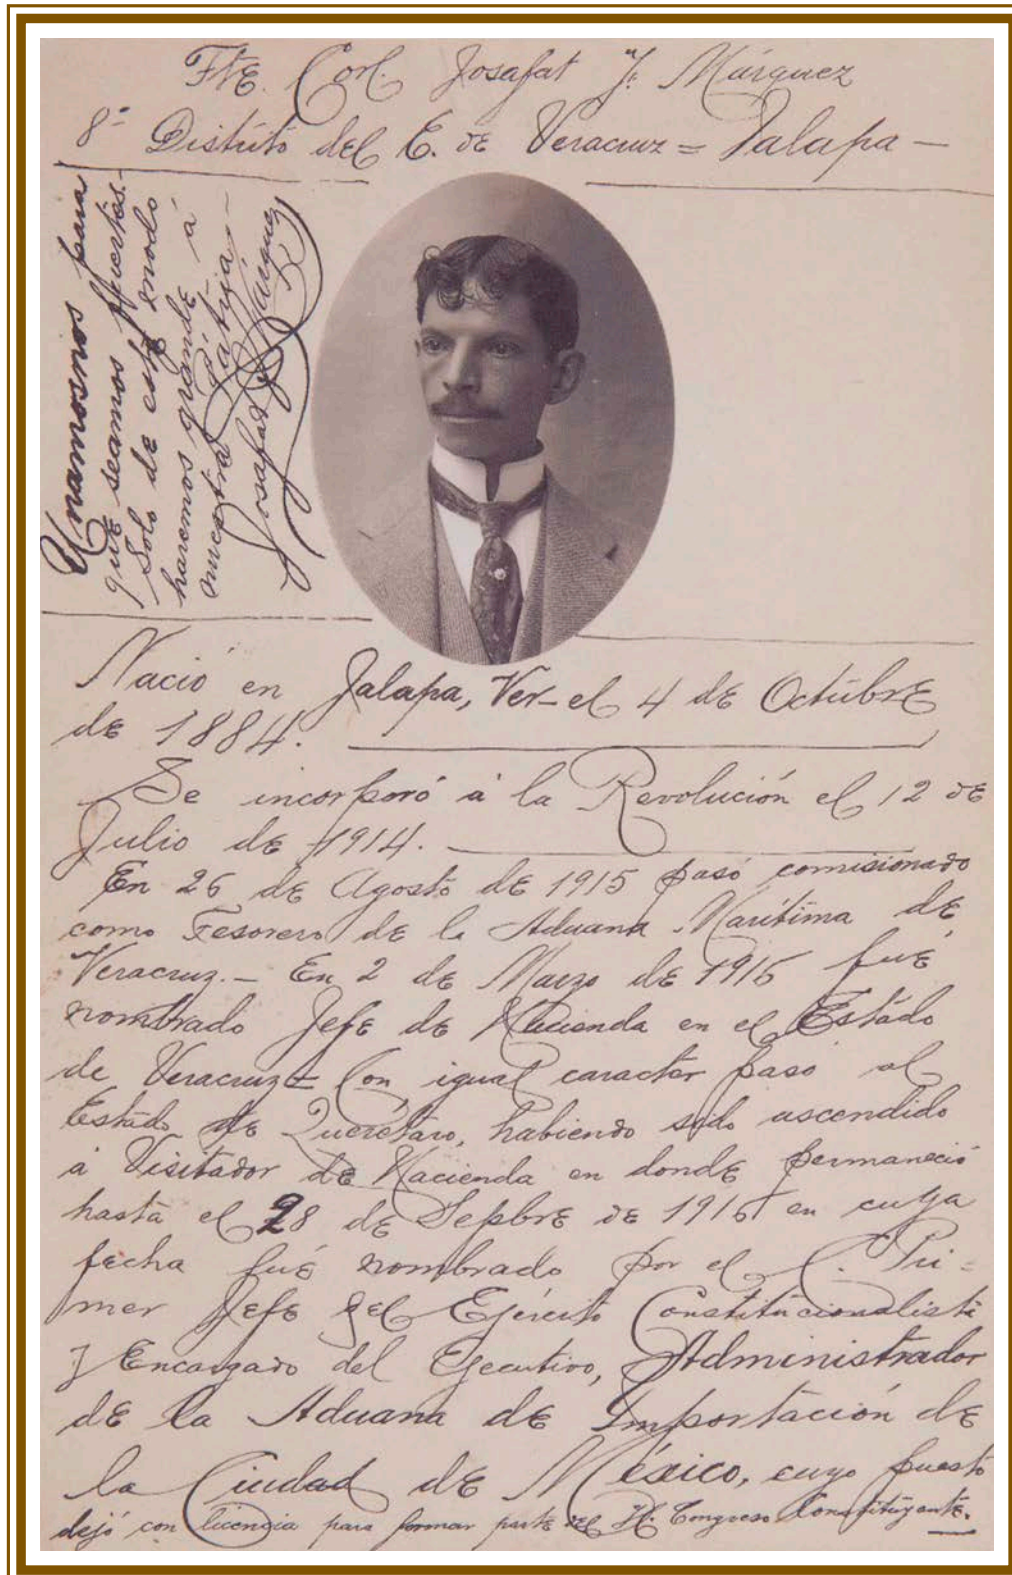 Fte. Corl. Josafat F. Márquez
8º Distrito del E. de Veracruz = Jalapa —
Unamosnos para
que seamos fuertes.-
Solo de ese modo
haremos grande á
nuestra Pátria -
Josafat F. Márquez
Nació en Jalapa, Ver- el 4 de Octúbre
de 1884.
Se incorporó á la Revolución el 12 de
Julio de 1914.
En 26 de Agosto de 1915 pasó comisionado
como Tesorero de la Aduana Marítima de
Veracruz.- En 2 de Marzo de 1916 fué
nombrado Jefe de Hacienda en el Estádo
de Veracruz = Con igual caracter paso al
Estado de Querétaro, habiendo sido ascendido
á Visitador de Hacienda en donde permaneció
hasta el 28 de Sepbre de 1916 en cuya
fecha fué nombrado por el C. Pri=
mer Jefe del Ejército Constitucionalista
y Encargado del Ejecutivo, Administrador
de la Aduana de Importación de
la Ciudad de México, cuyo puesto
dejó con licencia para formar parte del H. Congreso Constituyente.